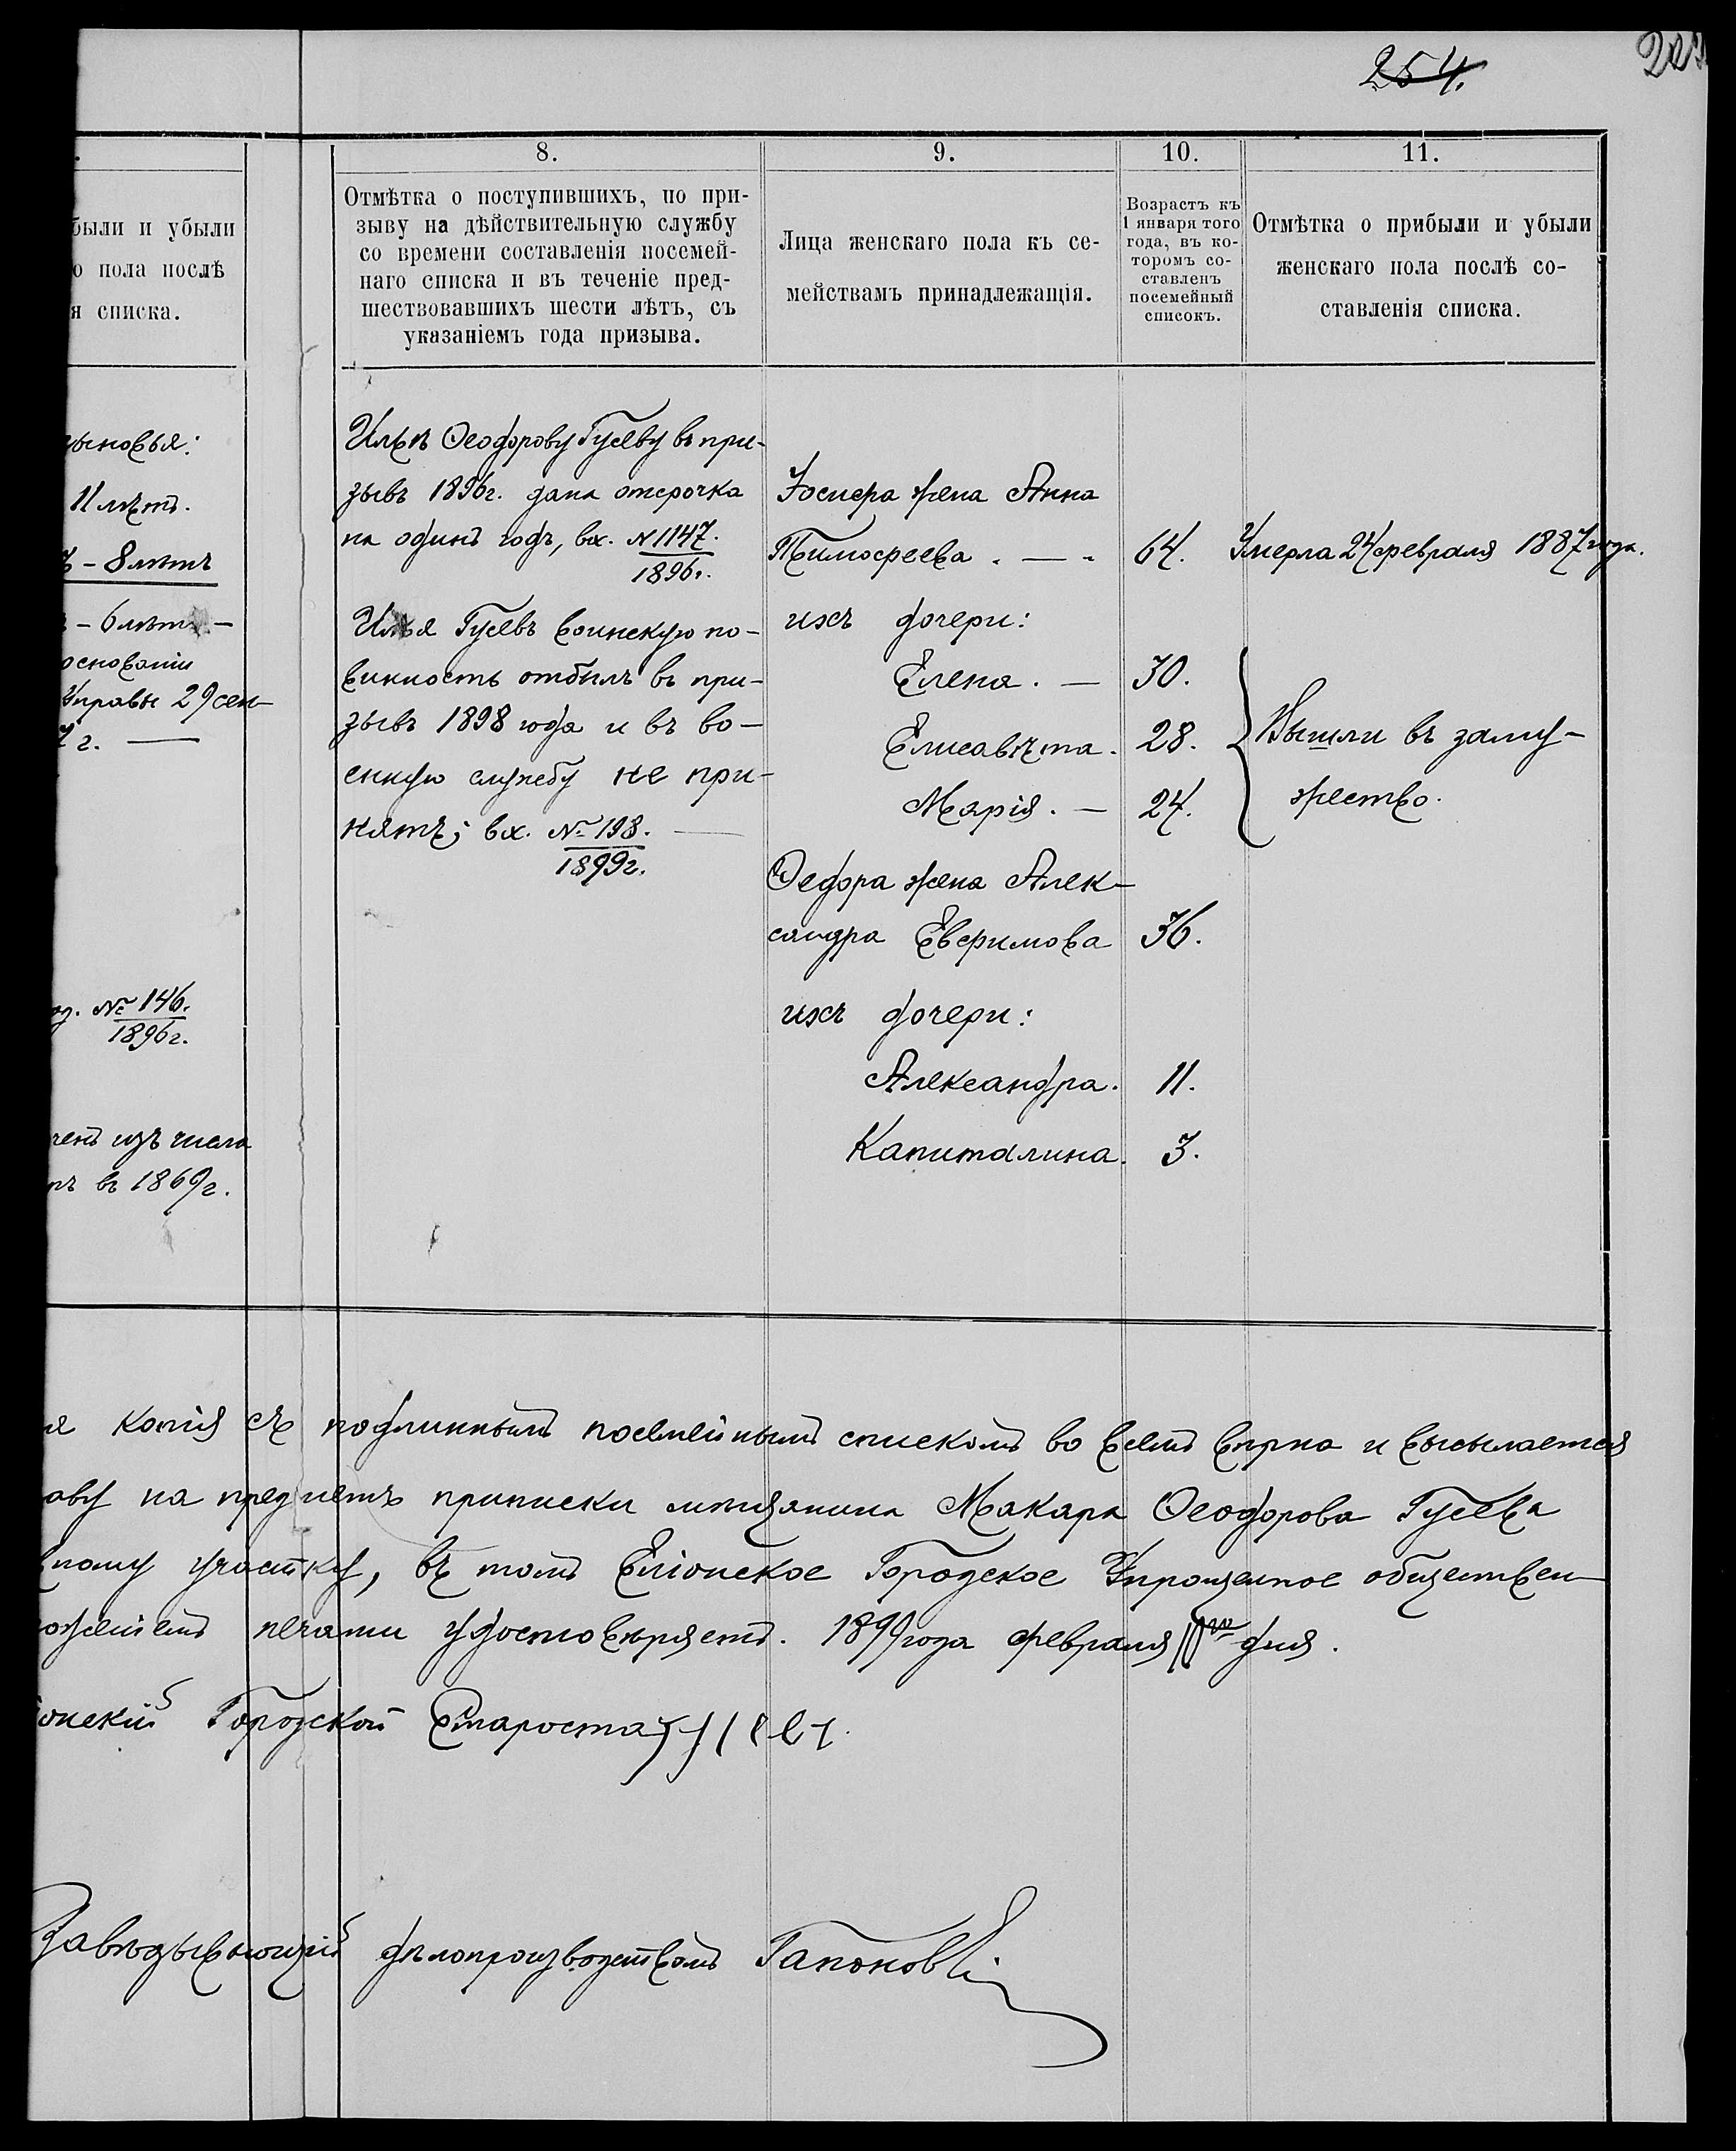 254.
8.
9.
10.
11.
были и убыли
о пола послѣ
я списка.
Отмѣтка о поступившихъ, по при-
зыву на дѣйствительную службу
со времени составленія посемей-
наго списка и въ теченіе пред-
шествовавшихъ шести лѣтъ, съ
указаніемъ года призыва.
Лица женскаго пола къ се-
мействамъ принадлежащія.
Возрастъ къ
1 января того
года, въ ко-
торомъ со-
ставленъ
посемейный
списокъ.
Отмѣтка о прибыли и убыли
женскаго пола послѣ со-
ставленія списка.
ыновья:
11 лѣтъ.
– 8 лѣтъ
– 6 лѣтъ –
основаніи
Управы 29 сен–
г. —
№ 146.
1896 г.
ченъ изъ числа
въ 1869 г.
Ильѣ Ѳеодорову Гусеву въ при-
зывъ 1896 г. дана отсрочка
на одинъ годъ, вх. № 1147.
1896 г.
Илья Гусевъ воинскую по-
винность отбылъ въ при-
зывъ 1898 года и въ во-
енную службу не при-
нятъ; вх. № 198. —
1899 г.
Іосифа жена Анна
Тимофеева . — . 64. Умерла 24 февраля 1887 года.
ихъ дочери:
Елена . — 30.
Елисавѣта . 28. Вышли въ заму-
Марія . — 24. жество.
Ѳедора жена Алек-
сандра Евфимова 36.
ихъ дочери:
Александра. 11.
Капиталина. 3.
я копія съ подлиннымъ посемейнымъ спискомъ во всемъ вѣрна и высылается
аву на предметъ приписки мѣщанина Макара Ѳеодорова Гусева
ному участку, въ томъ Еліонское Городское Упрощенное обществен–
оженіемъ печати удостовѣряетъ. 1899 года февраля дня.
онскій Городской Староста
Завѣдывающій дѣлопроизводствомъ Гапонов